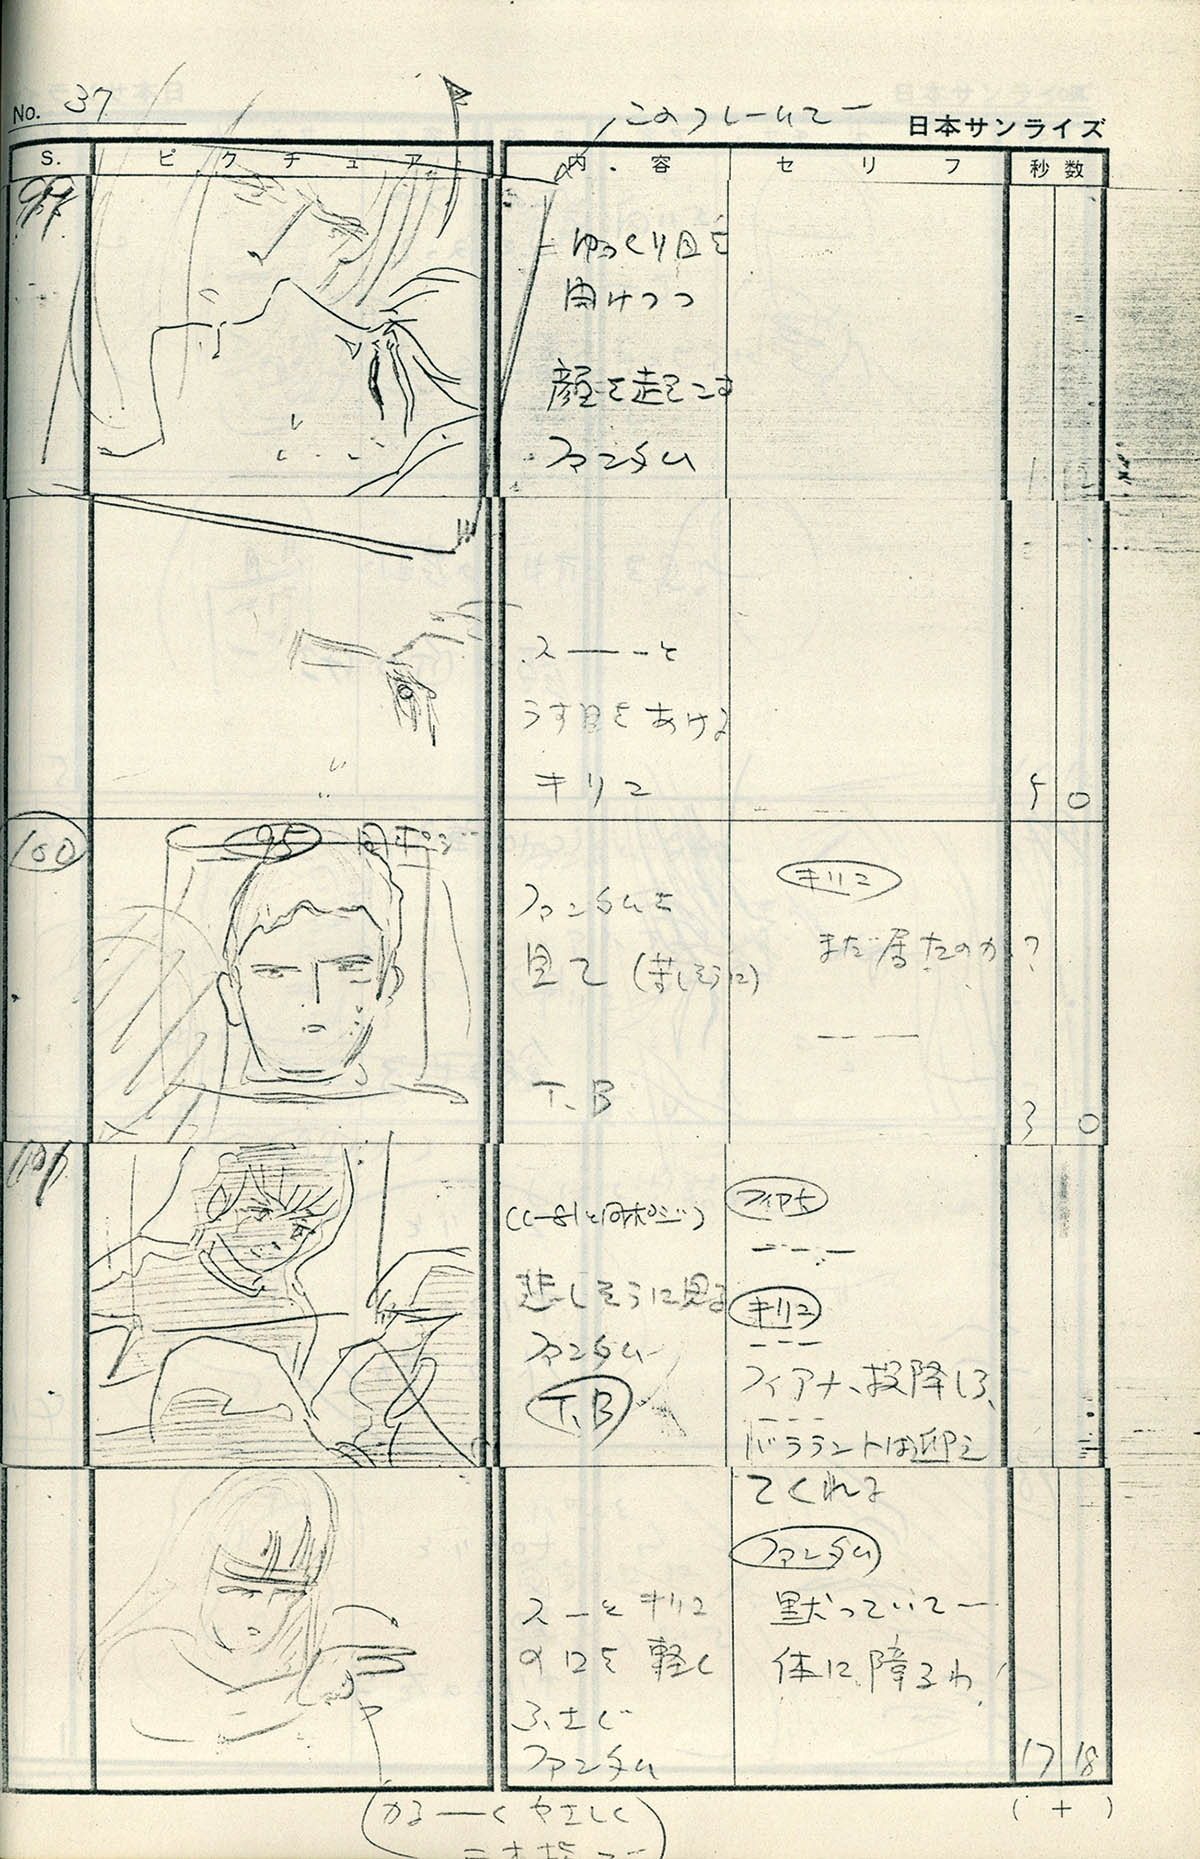 No. 37
このフレームで
日本サンライズ
S.
ピクチュア
内・容
セリフ
秒数
99
ゆっくり目を
開けつつ
顔を起こす
ファンタム
スーーーと
うす目をあける
キリコ
5 0
100
95 同ポジ
ファンタムを
見て (苦しそうに)
T.B
キリコ
まだ居たのか?
3 0
101
(C-81と同ポジ)
悲しそうに見る
ファンタム
T.B
フィアナ
キリコ
フィアナ、投降しろ、
バララントは迎え
てくれる
スーと キリコ
の口を 軽く
ふさぐ
ファンタム
ファンタム
黙っていてー
体に障るわ!
17 18
( + )
(かるーく やさしく